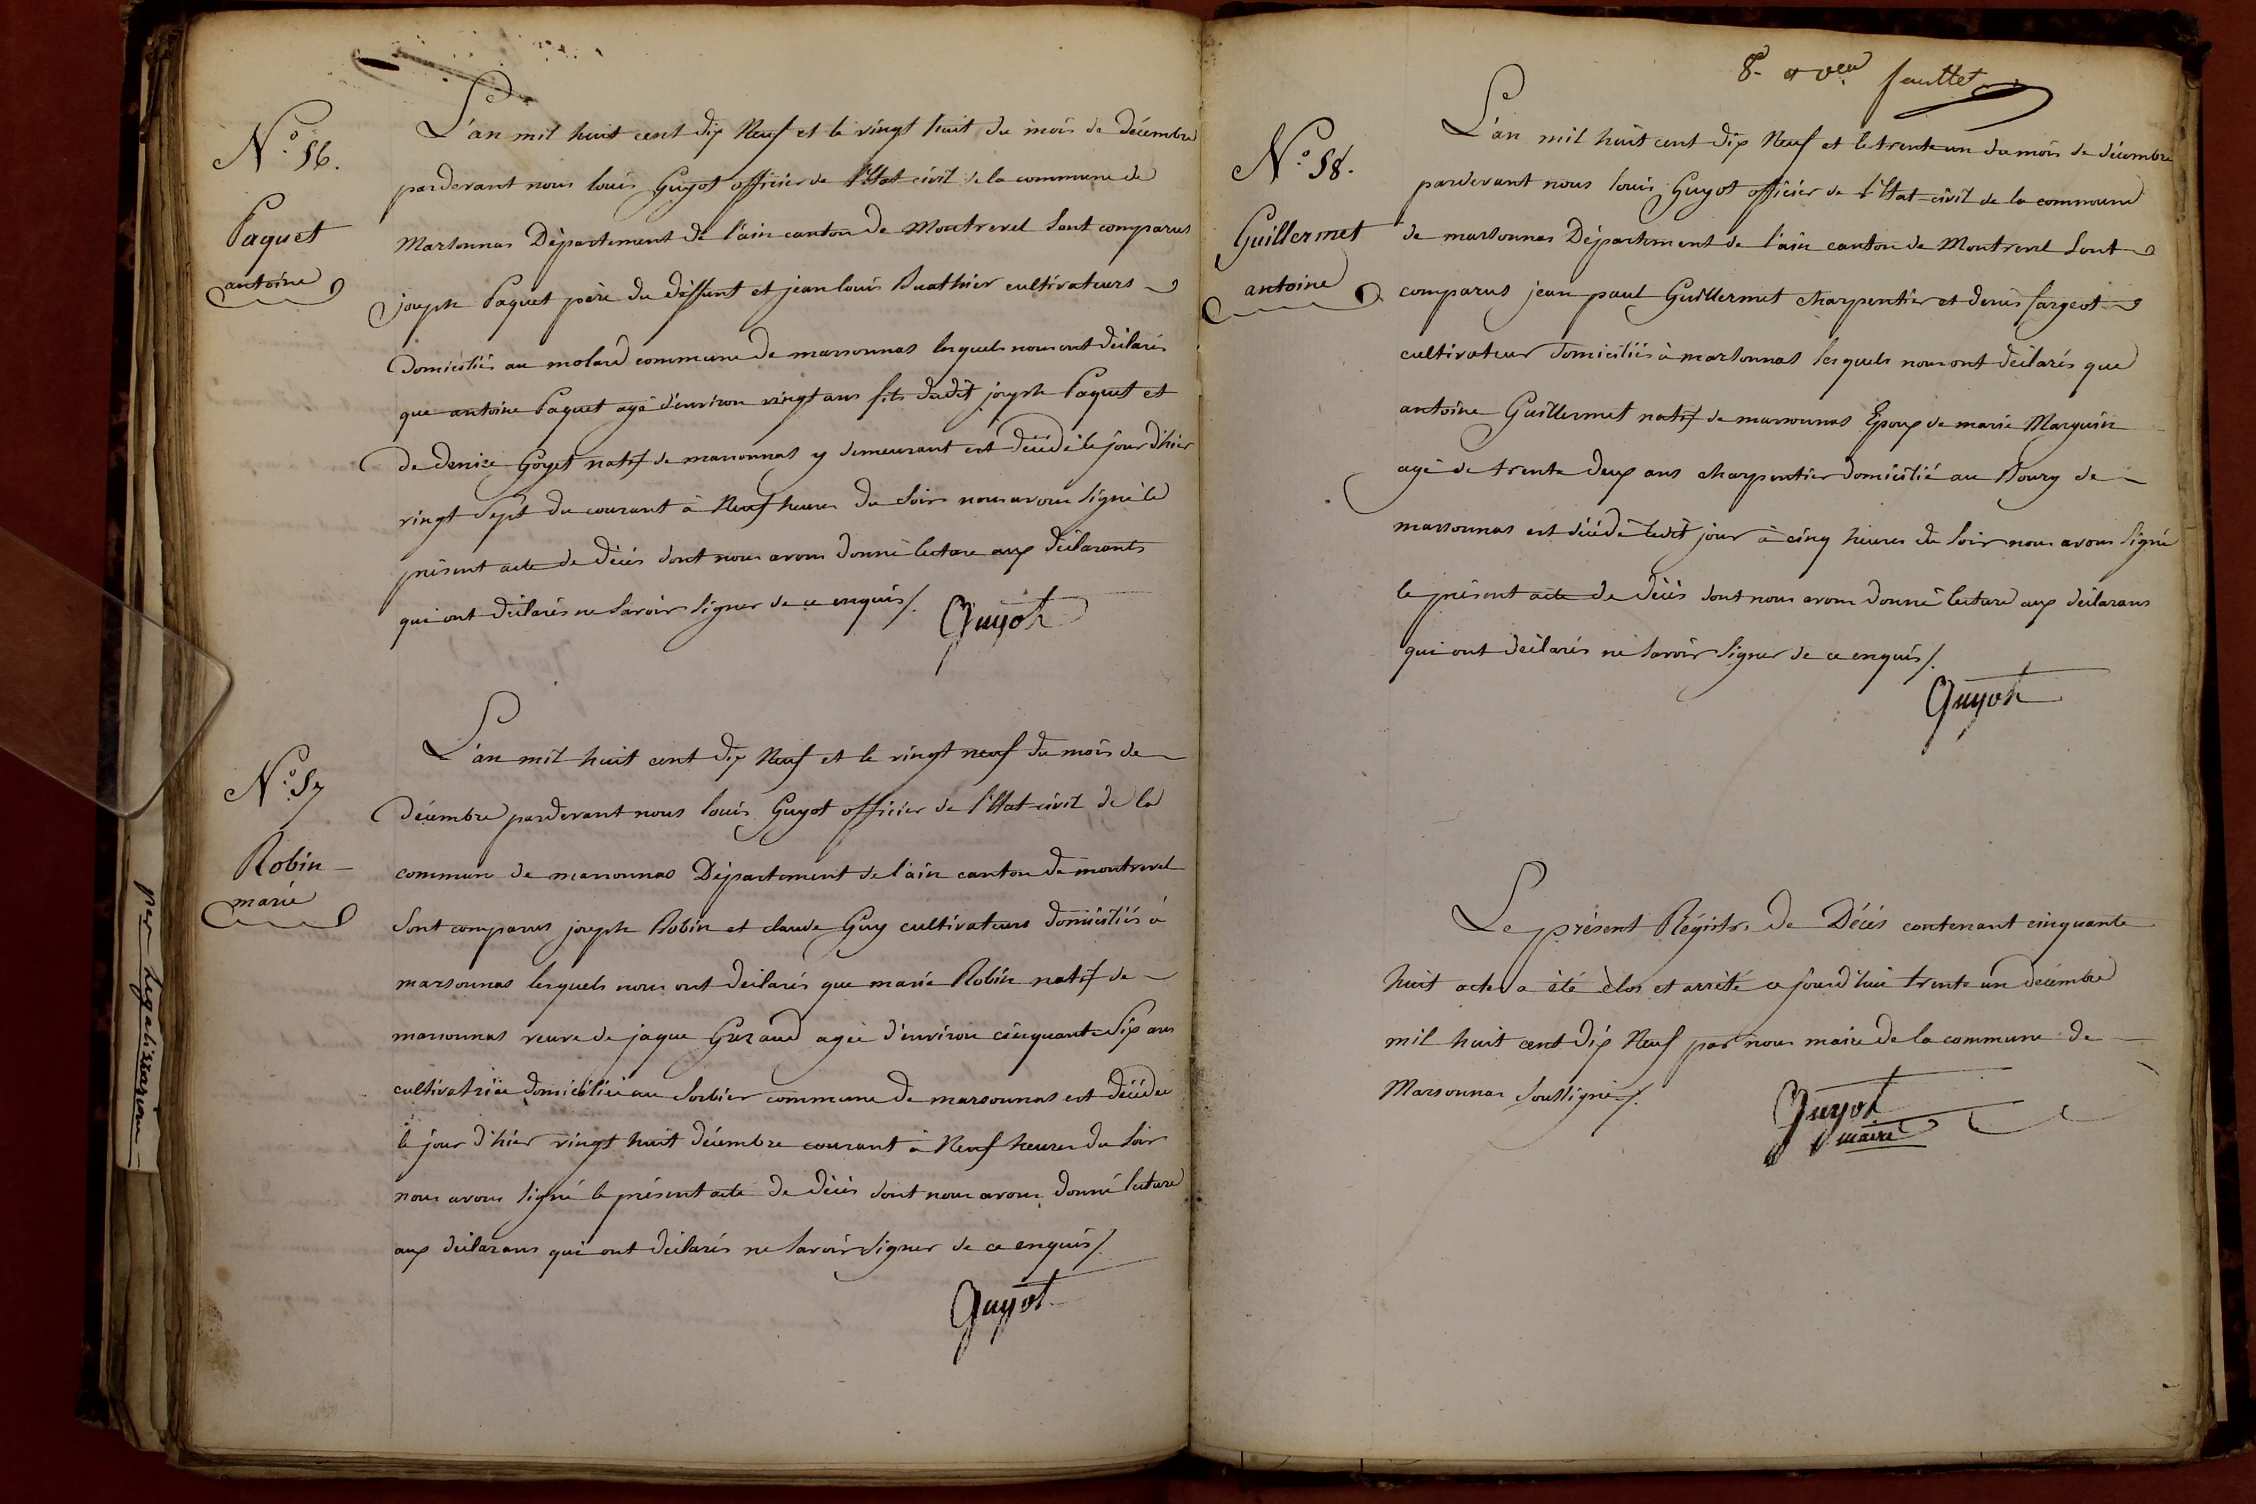 N.o 56.
Paquet
antoine
L'an mil huit cent dix Neuf et le vingt huit du mois de décembre
pardevant nous louis Guyot officier de l'Etat civil de la commune de
Marsonnas Département de l'ain canton de Montrevel sont comparus
joseph Paquet père du deffunt et jean louis Buathier cultivateurs
Domiciliés au molard commune de marsonnas lesquels nous ont déclarés
que antoine Paquet agé d'environ vingt ans fils dudit joseph Paquet et
de denise Goyet natif de marsonnas y demeurant est décédé le jour d'hier
vingt sept du courant à Neuf heures du soir nous avons signé le
présent acte de décès dont nous avons donné lecture aux déclarants
qui ont déclarés ne savoir signer de ce enquis /.
Guyot
N.o 57
Robin
marie
L'an mil huit cent dix Neuf et le vingt neuf du mois de
décembre pardevant nous louis Guyot officier de l'Etat civil de la
commune de marsonnas Département de l'ain canton de montrevel
sont comparus joseph Robin et claude Guy cultivateurs domiciliés à
marsonnas lesquels nous ont déclarés que marie Robin natif de
marsonnas veuve de jaque Guraud agée d'environ cinquante six ans
cultivatrice domiciliée au sorbier commune de marsonnas est décédée
le jour d'hier vingt huit décembre courant à Neuf heures du soir
nous avons signé le présent acte de décès dont nous avons donné lecture
aux déclarans qui ont déclarés ne savoir signer de ce enquis /.
Guyot
per Legalizzazione
8. feuillet
N.o 58.
Guillermet
antoine
L'an mil huit cent dix Neuf et le trente un du mois de décembre
pardevant nous louis Guyot officier de l'Etat civil de la commune
de marsonnas Département de l'ain canton de Montrevel sont
comparus jean paul Guillermet charpentier et denis fargeot
cultivateur domiciliés à marsonnas lesquels nous ont déclarés que
antoine Guillermet natif de marsonnas Epoux de marie Marguin
agé de trente deux ans charpentier domicilié au Bourg de
marsonnas est décédé ledit jour à cinq heures du soir nous avons signé
le présent acte de décès dont nous avons donné lecture aux déclarans
qui ont déclarés ne savoir signer de ce enquis /.
Guyot
Le présent Régistre de Décès contenant cinquante
huit actes a été clos et arrêté ce jourd'hui trente un décembre
mil huit cent dix Neuf par nous maire de la commune de
Marsonnas soussigné /.
Guyot
maire